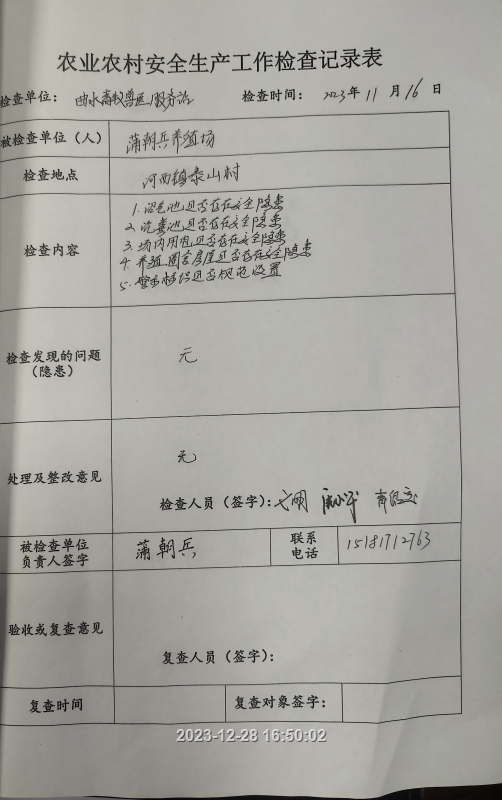 农业农村安全生产工作检查记录表
检查单位： 曲水畜牧兽医服务站 检查时间： 2023年 11 月 16 日
被检查单位（人） 蒲朝兵养殖场
检查地点 河西镇泰山村
检查内容
1. 沼气池是否存在安全隐患
2. 洗粪池是否存在安全隐患
3. 场内用电是否存在安全隐患
4. 养殖圈舍房屋是否存在安全隐患
5. 警示标识是否规范设置
检查发现的问题
（隐患）
无
处理及整改意见
无
检查人员（签字）：
被检查单位
负责人签字
蒲朝兵
联系
电话
15181712763
验收或复查意见
复查人员（签字）：
复查时间 复查对象签字：
2023-12-28 16:50:02